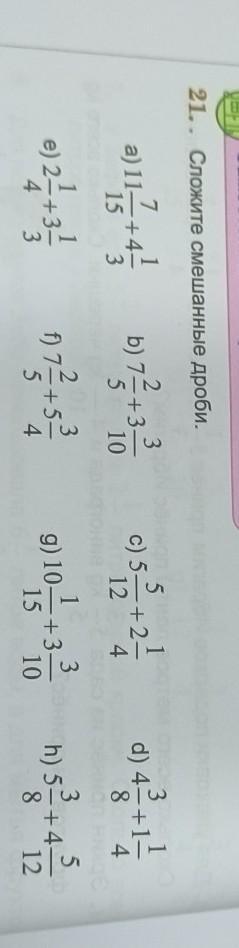 21. . Сложите смешанные дроби.
a) 11 7/15 + 4 1/3 b) 7 2/5 + 3 3/10 c) 5 5/12 + 2 1/4 d) 4 3/8 + 1 1/4
e) 2 1/4 + 3 1/3 f) 7 2/5 + 5 3/4 g) 10 1/15 + 3 3/10 h) 5 3/8 + 4 5/12